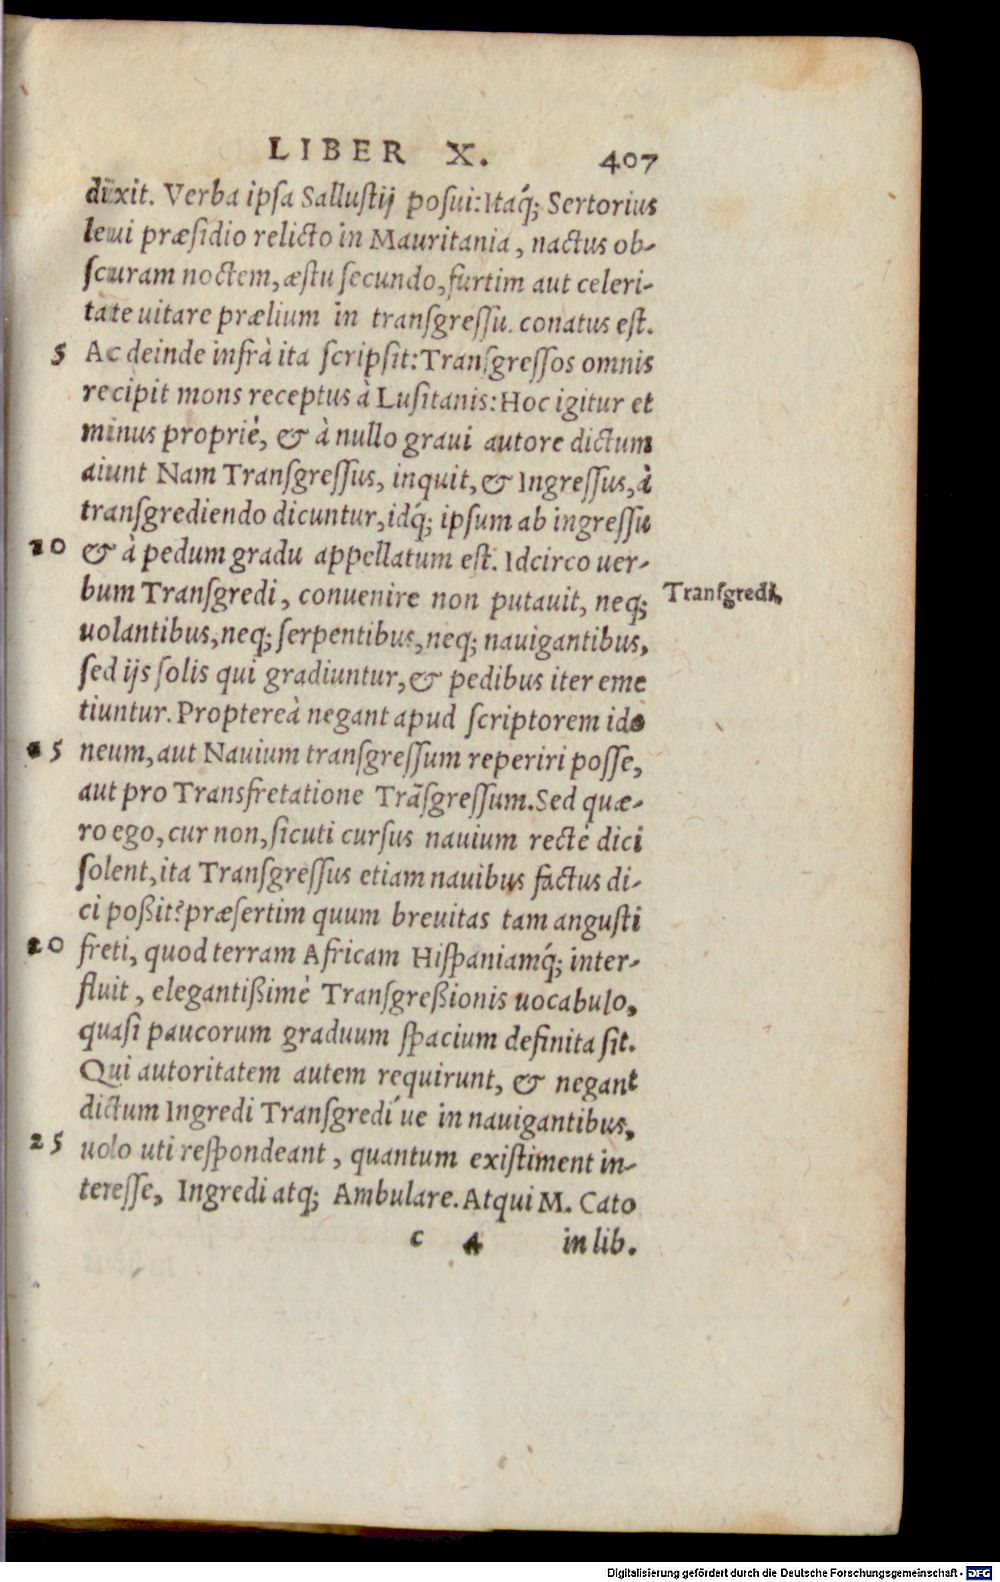 LIBER X. 407
dixit. Verba ipſa Salluſtij poſui: Itaq́; Sertorius
leui præſidio relicto in Mauritania, nactus ob-
ſcuram noctem, æſtu ſecundo, furtim aut celeri-
tate uitare prælium in tranſgreſſu. conatus eſt.
5 Ac deinde infrà ita ſcripſit: Tranſgreſſos omnis
recipit mons receptus à Luſitanis: Hoc igitur et
minus propriè, & à nullo graui autore dictum
aiunt Nam Tranſgreſſus, inquit, & Ingreſſus, à
tranſgrediendo dicuntur, idq́; ipſum ab ingreſſu
10 & à pedum gradu appellatum eſt. Idcirco uer-
bum Tranſgredi, conuenire non putauit, neq; Tranſgredi,
uolantibus, neq; ſerpentibus, neq; nauigantibus,
ſed ijs ſolis qui gradiuntur, & pedibus iter eme
tiuntur. Propterеà negant apud ſcriptorem ido
15 neum, aut Nauium tranſgreſſum reperiri poſſe,
aut pro Transfretatione Trãſgreſſum. Sed quæ-
ro ego, cur non, ſicuti curſus nauium rectè dici
ſolent, ita Tranſgreſſus etiam nauibus factus di-
ci poßit? præſertim quum breuitas tam anguſti
20 freti, quod terram Africam Hiſpaniamq́; inter-
fluit, elegantißimè Tranſgreßionis uocabulo,
quaſi paucorum graduum ſpacium definita ſit.
Qui autoritatem autem requirunt, & negant
dictum Ingredi Tranſgredi´ue in nauigantibus,
25 uolo uti reſpondeant, quantum exiſtiment in-
tereſſe, Ingredi atq; Ambulare. Atqui M. Cato
c 4 in lib.
Digitalisierung gefördert durch die Deutsche Forschungsgemeinschaft - DFG